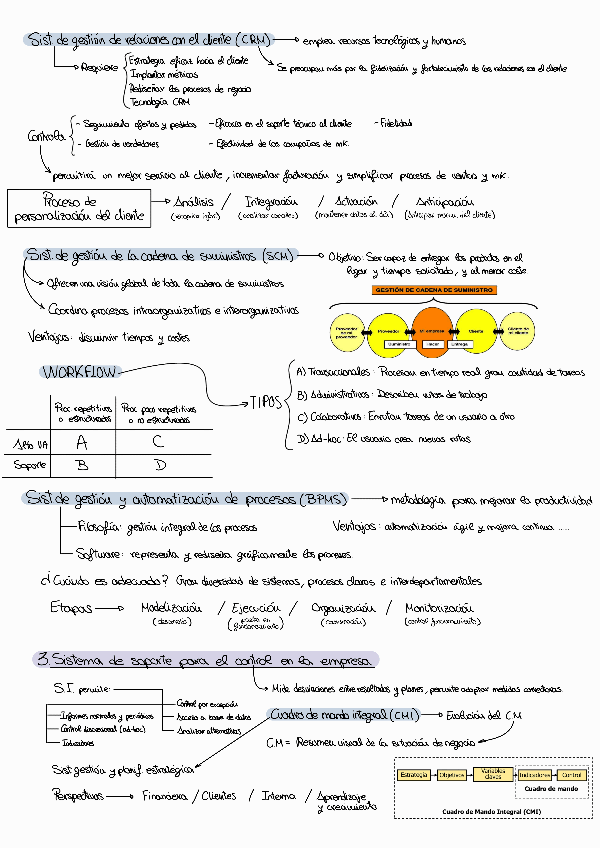 Sist de gestión de relaciones con el cliente (CRM) → emplea recursos tecnológicos y humanos
Se preocupan más por la fidelización y fortalecimiento de las relaciones con el cliente
Requiere
Estrategia eficaz hacia el cliente
Implantar métricas
Rediseñar los procesos de negocio
Tecnología CRM
Controla
- Seguimiento ofertas y pedidos - Eficacia en el soporte técnico al cliente - Fidelidad
- Gestión de vendedores - Efectividad de las campañas de mk.
permitirá un mejor servicio al cliente, incrementar facturación y simplificar procesos de ventas y mk.
Proceso de personalización del cliente → Análisis / Integración / Actuación / Anticipación
(recopila infor) (analizar canales) (mantener datos al día) (Anticipar necesi. del cliente)
Sist. de gestión de la cadena de suministros (SCM) → Objetivo: Ser capaz de entregar los productos en el
lugar y tiempo solicitado, y al menor coste
Ofrecen una visión global de toda la cadena de suministros
Coordina procesos intraorganizativos e interorganizativos
Ventajas: disminuir tiempos y costes
GESTIÓN DE CADENA DE SUMINISTRO
Proveedor de mi proveedor
Proveedor
Mi empresa
Cliente
Cliente de mi cliente
Suministro Hacer Entrega
WORKFLOW
TIPOS
A) Transaccionales: Procesan en tiempo real gran cantidad de tareas
B) Administrativos: Describen rutas de trabajo
C) Colaborativos: Enrutan tareas de un usuario a otro
D) Ad-hoc: El usuario crea nuevas rutas
Proc repetitivos o estructurados
Proc poco repetitivos o no estructurados
Alto VA A C
Soporte B D
Sist de gestión y automatización de procesos (BPMS) → metodología para mejorar la productividad
Filosofía: gestión integral de los procesos
Ventajas: automatización ágil y mejora continua .....
Software: representa y rediseña gráficamente los procesos.
¿Cuándo es adecuado? Gran diversidad de sistemas, procesos claros e interdepartamentales
Etapas → Modelización / Ejecución / Organización / Monitorización
(desarrollo) (puesta en funcionamiento) (control funcionamiento)
3. Sistema de soporte para el control en la empresa
S.I. permite:
Mide desviaciones entre resultados y planes, permite adoptar medidas correctoras.
Informes normales y periódicos
Control direccional (ad-hoc)
Indicadores
Control por excepción
Acceso a base de datos
Analizar alternativas
Cuadro de mando integral (CMI) → Evolución del CM
C.M = Resumen visual de la situación de negocio
Sist gestión y planif. estratégica
Perspectivas → Financiera / Clientes / Interna / Aprendizaje y crecimiento
Estrategia
Objetivos
Variables claves
Indicadores
Control
Cuadro de mando
Cuadro de Mando Integral (CMI)